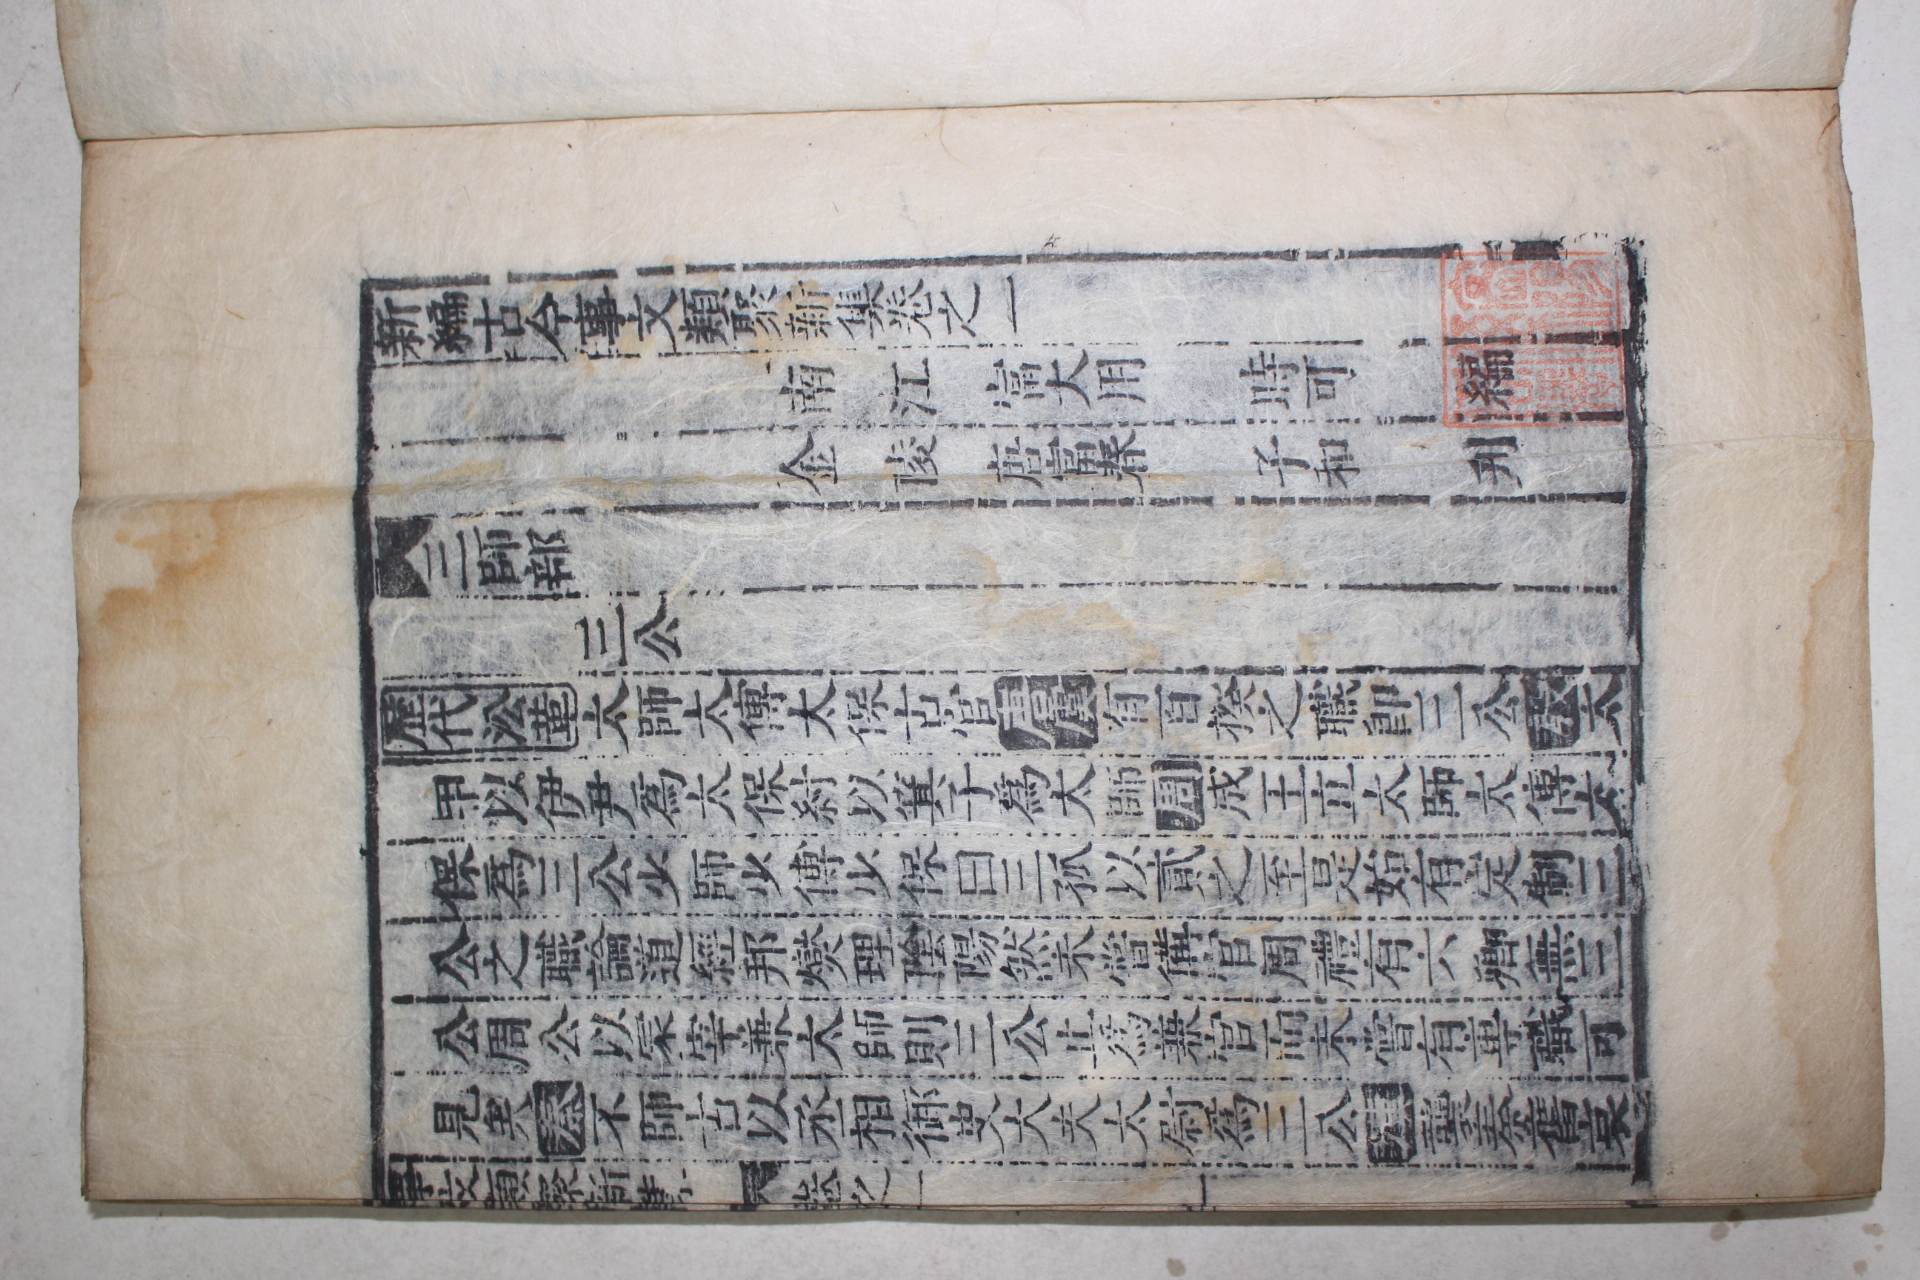 新編古今事文類聚新集卷之一
南江富大用時可編
金陵唐富春子和刋
三師部
三公
歷代沿革太師太傅太保古官唐虞有百揆之職卽三公殷太
甲以伊尹爲太保紂以箕子爲太師周成王立太師太傅太
保爲三公少師少傅少保曰三孤以貳之至是始有定制三
公之職論道經邦燮理陰陽然未嘗備官周禮有六卿無三
公周公以冢宰兼太師則三公止爲兼官而未嘗有專職可
見矣秦不師古以丞相御史大夫太尉爲三公漢襲秦舊哀
事文類聚新集 卷之一 一